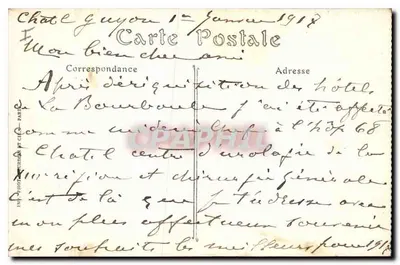 Chatel Guyon 1er Janvier 1918
I
Mon bien cher ami
Carte Postale
Correspondance
Adresse
Après déréquisition des hôtels
de La Bourboule j'ai été affecté
comme médecin chef à l'hôp 68
CPARAMA
Chatel centre d'urologie de la
XIIIe région et chirurgie générale
C'est de là que je t'adresse avec
mon plus affectueux souvenir
mes souhaits les meilleurs pour 1918